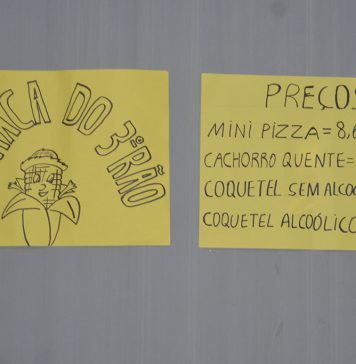 RACA DO 3ºRÃO
PREÇOS
MINI PIZZA = 8,0
CACHORRO QUENTE =
COQUETEL SEM ALCOO
COQUETEL ALCOÓLICO